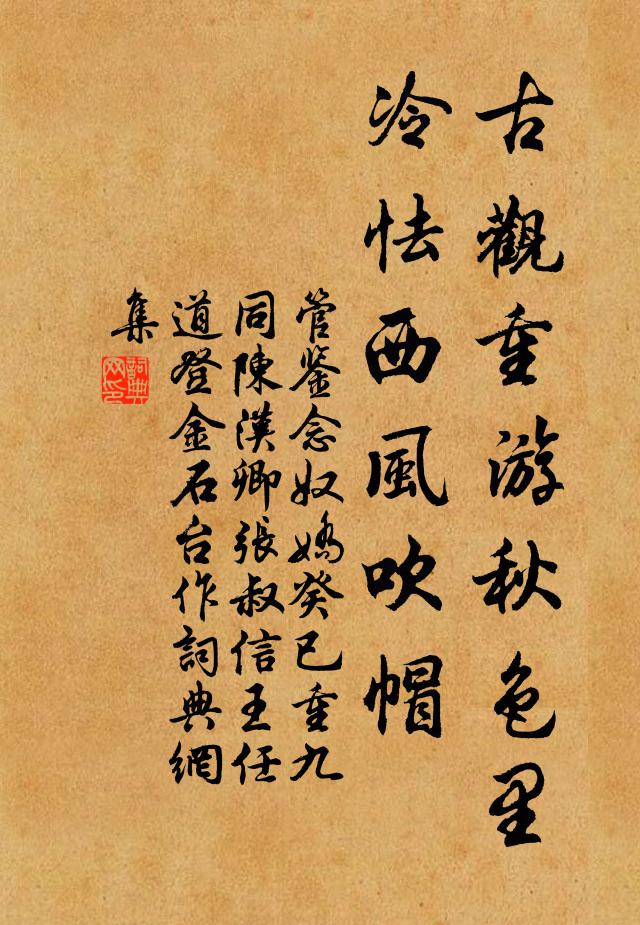 古觀重游秋色里
冷怯西風吹帽
管鉴念奴嬌癸巳重九
同陳漢卿張叔信王任
道登金石台作詞典網
集
詞典
网印